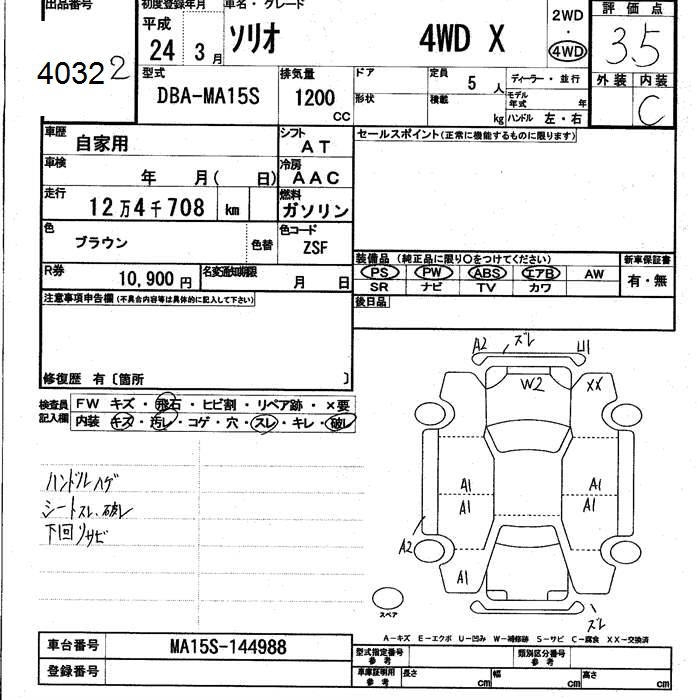 出品番号
4032 2
初度登録年月
平成
24 3月
車名・グレード
ソリオ 4WD X
2WD
・
4WD
評価点
3.5
外装 内装
C
型式
DBA-MA15S
排気量
1200 CC
ドア
定員 5 人
ディーラー・並行
形状
積載 kg
モデル年式 年
ハンドル 左・右
車歴
自家用
シフト
AT
車検
年 月( 日)
冷房
AAC
走行
12万4千708 km
燃料
ガソリン
色
ブラウン
色替
色コード
ZSF
R券
10,900円
名変通知期限
月 日
セールスポイント(正常に機能するものに限ります)
装備品(純正品に限り〇をつけてください)
新車保証書
PS PW ABS エアB AW
SR ナビ TV カワ
有・無
後日品
注意事項申告欄(不具合内容等は具体的に記入して下さい)
修復歴 有〔箇所 〕
検査員
記入欄
FW キズ・飛石・ヒビ割・リペア跡・×要
内装 キズ・汚レ・コゲ・穴・スレ・キレ・破レ
ハンドルハゲ
シートスレ、破レ
下回リサビ
A2 ズレ U1
W2 XX
A1 A1
A1 A1
A2
A1
スペア
ズレ
A-キズ E-エクボ U-凹み W-補修跡 S-サビ C-腐食 XX-交換済
車台番号 MA15S-144988
登録番号
型式指定番号
参考
類別区分番号
参考
車庫証明用
参考
長さ cm 幅 cm 高さ cm